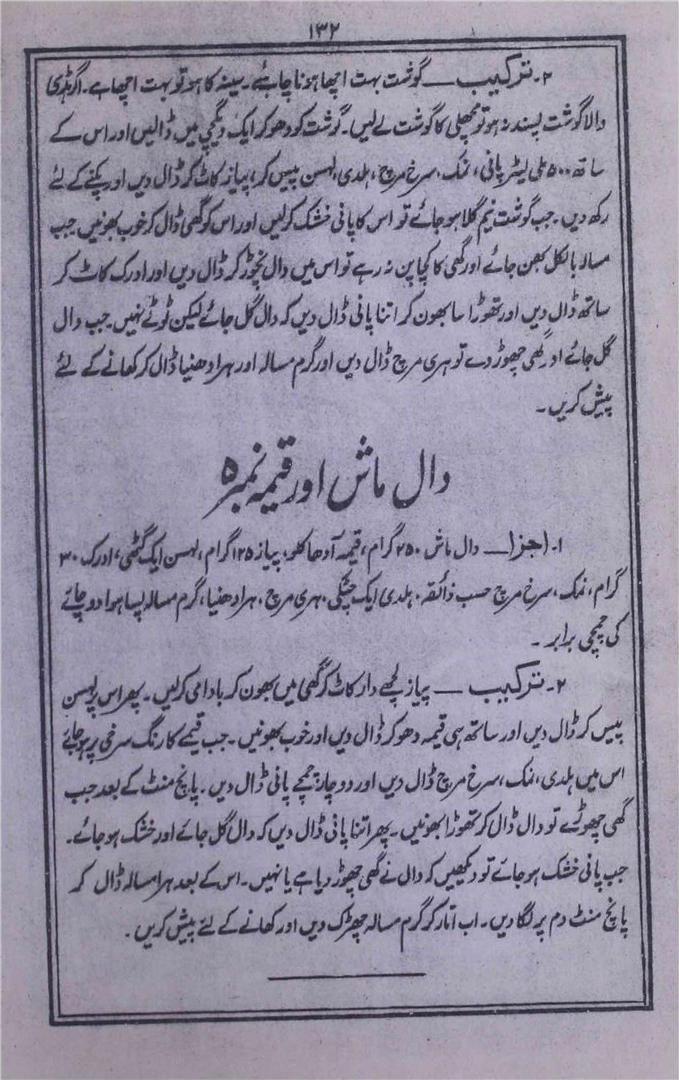 ۱۳۲
۲۔ ترکیب ــــ گوشت بہت اچھا ہونا چاہئے۔ سینہ کا ہو تو بہت اچھا ہے۔ اگر ہڈی
والا گوشت پسند نہ ہو تو مچھلی کا گوشت لے لیں۔ گوشت کو دھو کر ایک دیگچی میں ڈالیں اور اس کے
ساتھ ۵۰۰ ملی لیٹر پانی، نمک، سرخ مرچ، ہلدی، لہسن پیس کر، پیاز کاٹ کر ڈال دیں اور پکنے کے لئے
رکھ دیں۔ جب گوشت نیم گلا ہو جائے تو اس کا پانی خشک کر لیں اور اس کو گھی ڈال کر خوب بھونیں جب
مسالہ بالکل بھن جائے اور گھی کا کچا پن نہ رہے تو اس میں دال نچوڑ کر ڈال دیں اور ادرک کاٹ کر
ساتھ ڈال دیں اور تھوڑا سا بھون کر اتنا پانی ڈال دیں کہ دال گل جائے لیکن ٹوٹے نہیں۔ جب دال
گل جائے اور گھی چھوڑ دے تو ہری مرچ ڈال دیں اور گرم مسالہ اور ہرا دھنیا ڈال کر کھانے کے لئے
پیش کریں۔
دال ماش اور قیمہ نمبر ۵
۱۔ اجزا ــــ دال ماش ۲۵۰ گرام، قیمہ آدھا کلو، پیاز ۱۲۵ گرام، لہسن ایک گٹھی، ادرک ۳۰
گرام، نمک، سرخ مرچ حسب ذائقہ، ہلدی ایک چٹکی، ہری مرچ، ہرا دھنیا، گرم مسالہ پسا ہوا دو چائے
کی چمچی برابر۔
۲۔ ترکیب ــــ پیاز لچھے دار کاٹ کر گھی میں بھون کر بادامی کر لیں۔ پھر اس پر لہسن
پیس کر ڈال دیں اور ساتھ ہی قیمہ دھو کر ڈال دیں اور خوب بھونیں۔ جب قیمے کا رنگ سرخی پر ہو جائے
اس میں ہلدی، نمک، سرخ مرچ ڈال دیں اور دو چار چمچے پانی ڈال دیں۔ پانچ منٹ کے بعد جب
گھی چھوڑے تو دال ڈال کر تھوڑا بھونیں۔ پھر اتنا پانی ڈال دیں کہ دال گل جائے اور خشک ہو جائے۔
جب پانی خشک ہو جائے تو دیکھیں کہ دال نے گھی چھوڑ دیا ہے یا نہیں۔ اس کے بعد ہرا مسالہ ڈال کر
پانچ منٹ دم پر لگا دیں۔ اب اتار کر گرم مسالہ چھڑک دیں اور کھانے کے لئے پیش کریں۔